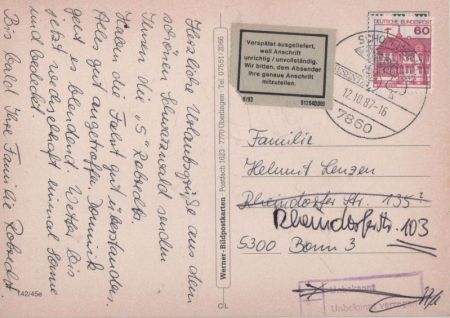 Herzliche Urlaubsgrüße aus dem
schönen Schwarzwald senden
Ihnen die "5" Roberdts
Haben die Fahrt gut überstanden,
Alles gut angetroffen, Dominik
geht es blendend. Wetter bis
jetzt wechselhaft einmal Sonne
mal bedeckt.
Bis bald Ihre Familie
142/45e
Werner-Bildpostkarten · Postfach 1623 7770 Überlingen Tel. 07551/2056
Verspätet ausgeliefert,
weil Anschrift
unrichtig / unvollständig.
Wir bitten, dem Absender
Ihre genaue Anschrift
mitzuteilen.
DEUTSCHE BUNDESPOST
60
12.10.87-16
7860
Familie
Helmut Lenzen
Rheindorfer Str. 135
Rheindorferstr. 103
5300 Bonn 3
Unbekannt
Unbekannt verzogen